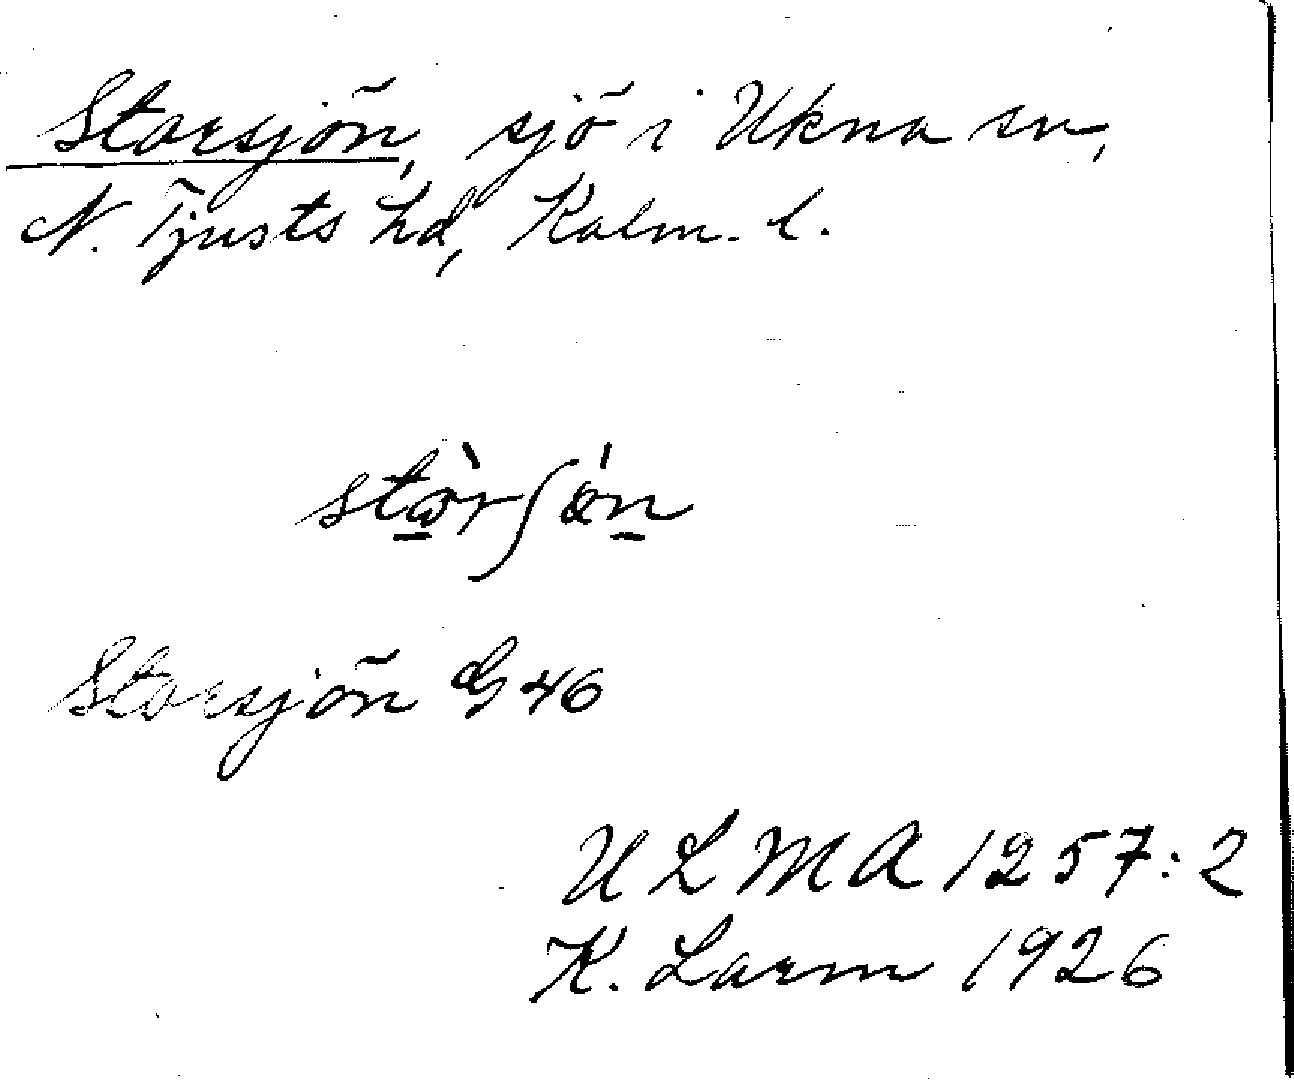 Storsjön, sjö i Ukna sn,
N. Tjusts hd, Kalm. l.
stòrʃón
Storsjön G 46
ULMA 1257:2
K. Larm 1926